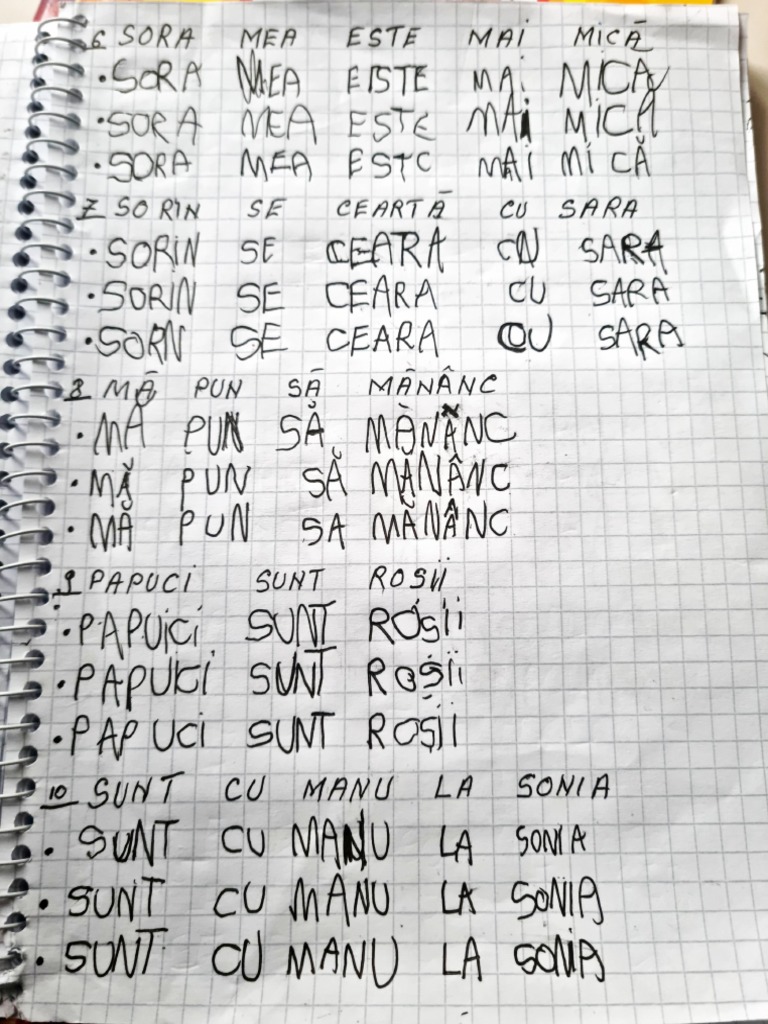 6 SORA MEA ESTE MAI MICĂ
• SORA MEA EISTE MAI MICA
• SORA MEA ESTE MAI MICĂ
• SORA MEA ESTC MAI MICĂ
7 SORIN SE CEARTĂ CU SARA
• SORIN SE CEARA CU SARA
• SORIN SE CEARA CU SARA
• SORN SE CEARA CU SARA
8 MĂ PUN SĂ MĂNÂNC
• MĂ PUN SĂ MĂNÂNC
• MĂ PUN SĂ MĂNÂNC
• MĂ PUN SA MĂNÂNC
9 PAPUCI SUNT ROSII
• PAPUICI SUNT ROȘII
• PAPUCI SUNT ROȘII
• PAPUCI SUNT ROȘII
10 SUNT CU MANU LA SONIA
• SUNT CU MANU LA SONIA
• SUNT CU MANU LA SONIA
• SUNT CU MANU LA SONIA